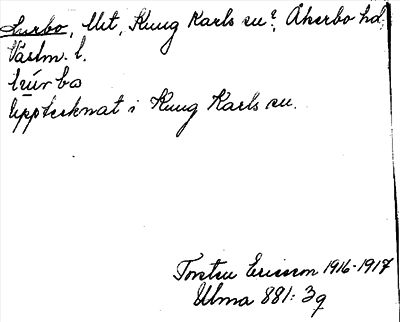 Surbo, Utt, Kung Karls sn?, Åkerbo hd,
Västm. l.
Uppteknat i Kung Karls sn.
Torsten Ericsson 1916-1917
Ulma 881: 3q